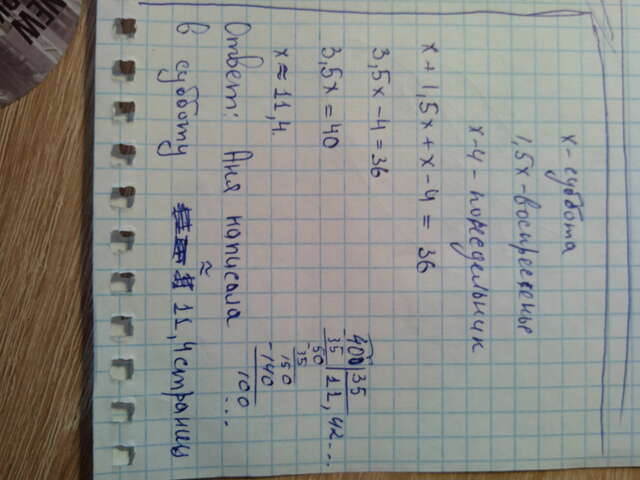 x - суббота
1,5x - воскресенье
x - 4 - понедельник
x + 1,5x + x - 4 = 36
3,5x - 4 = 36
3,5x = 40
x ≈ 11,4.
400 35
35 11,42...
50
-35
150
-140
100
...
Ответ: Аня написала
в субботу ≈ 11,4 страницы
NEW